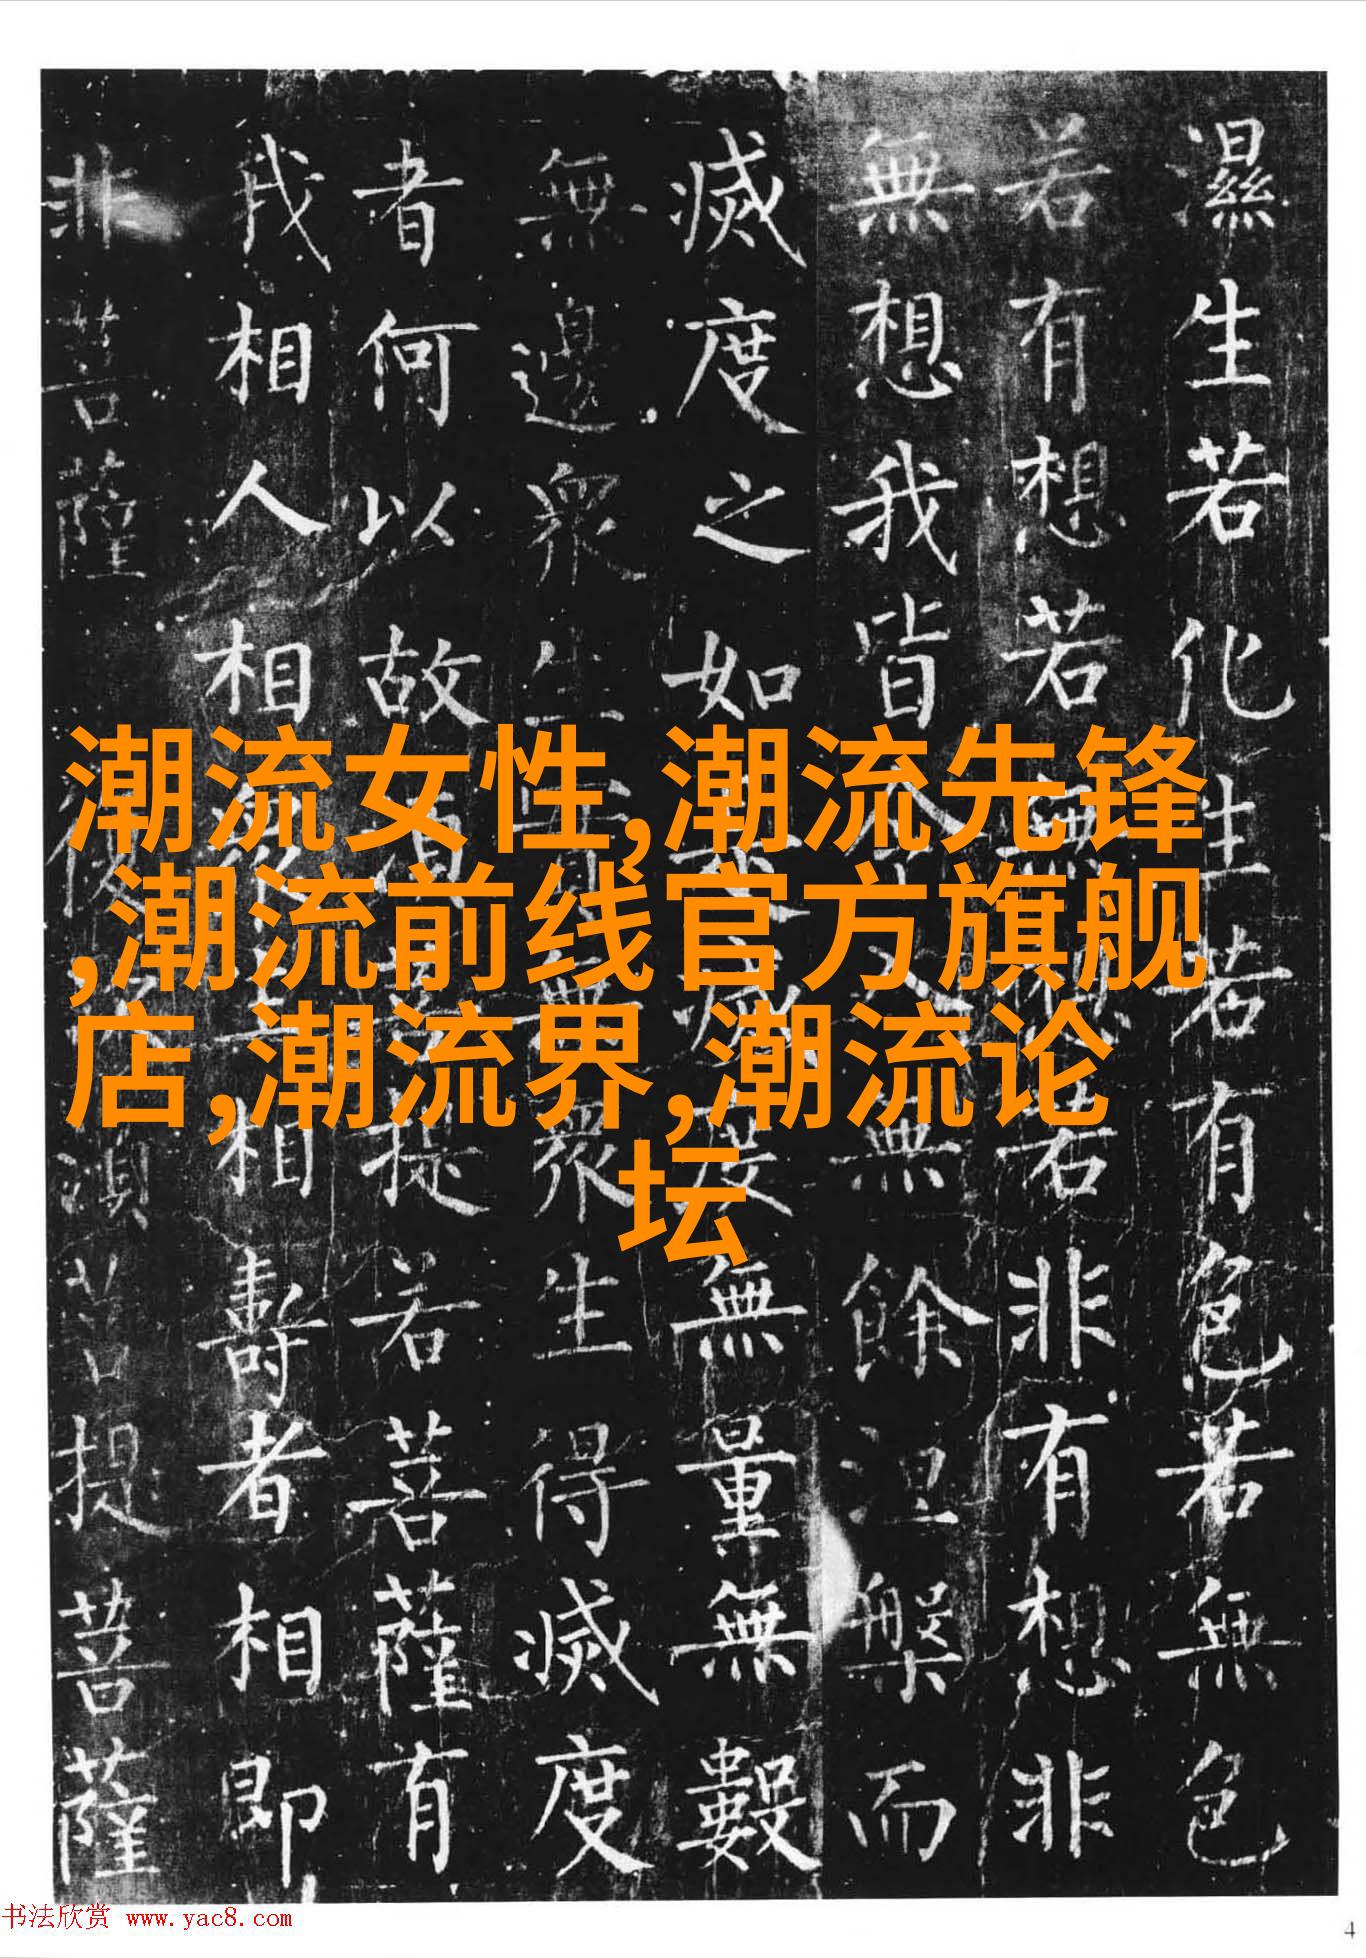 濕生若化生若有色若無色
若有想若無想若非有想非
無想我皆令入無餘涅槃而
滅度之如是滅度無量無數
無邊眾生實無眾生得滅度
者何以故須菩提若菩薩有
我相人相眾生相壽者相即
非菩薩復次須菩提菩薩
潮流女性,潮流先锋
,潮流前线官方旗舰
店,潮流界,潮流论
坛
书法欣赏 www.yac8.com
4